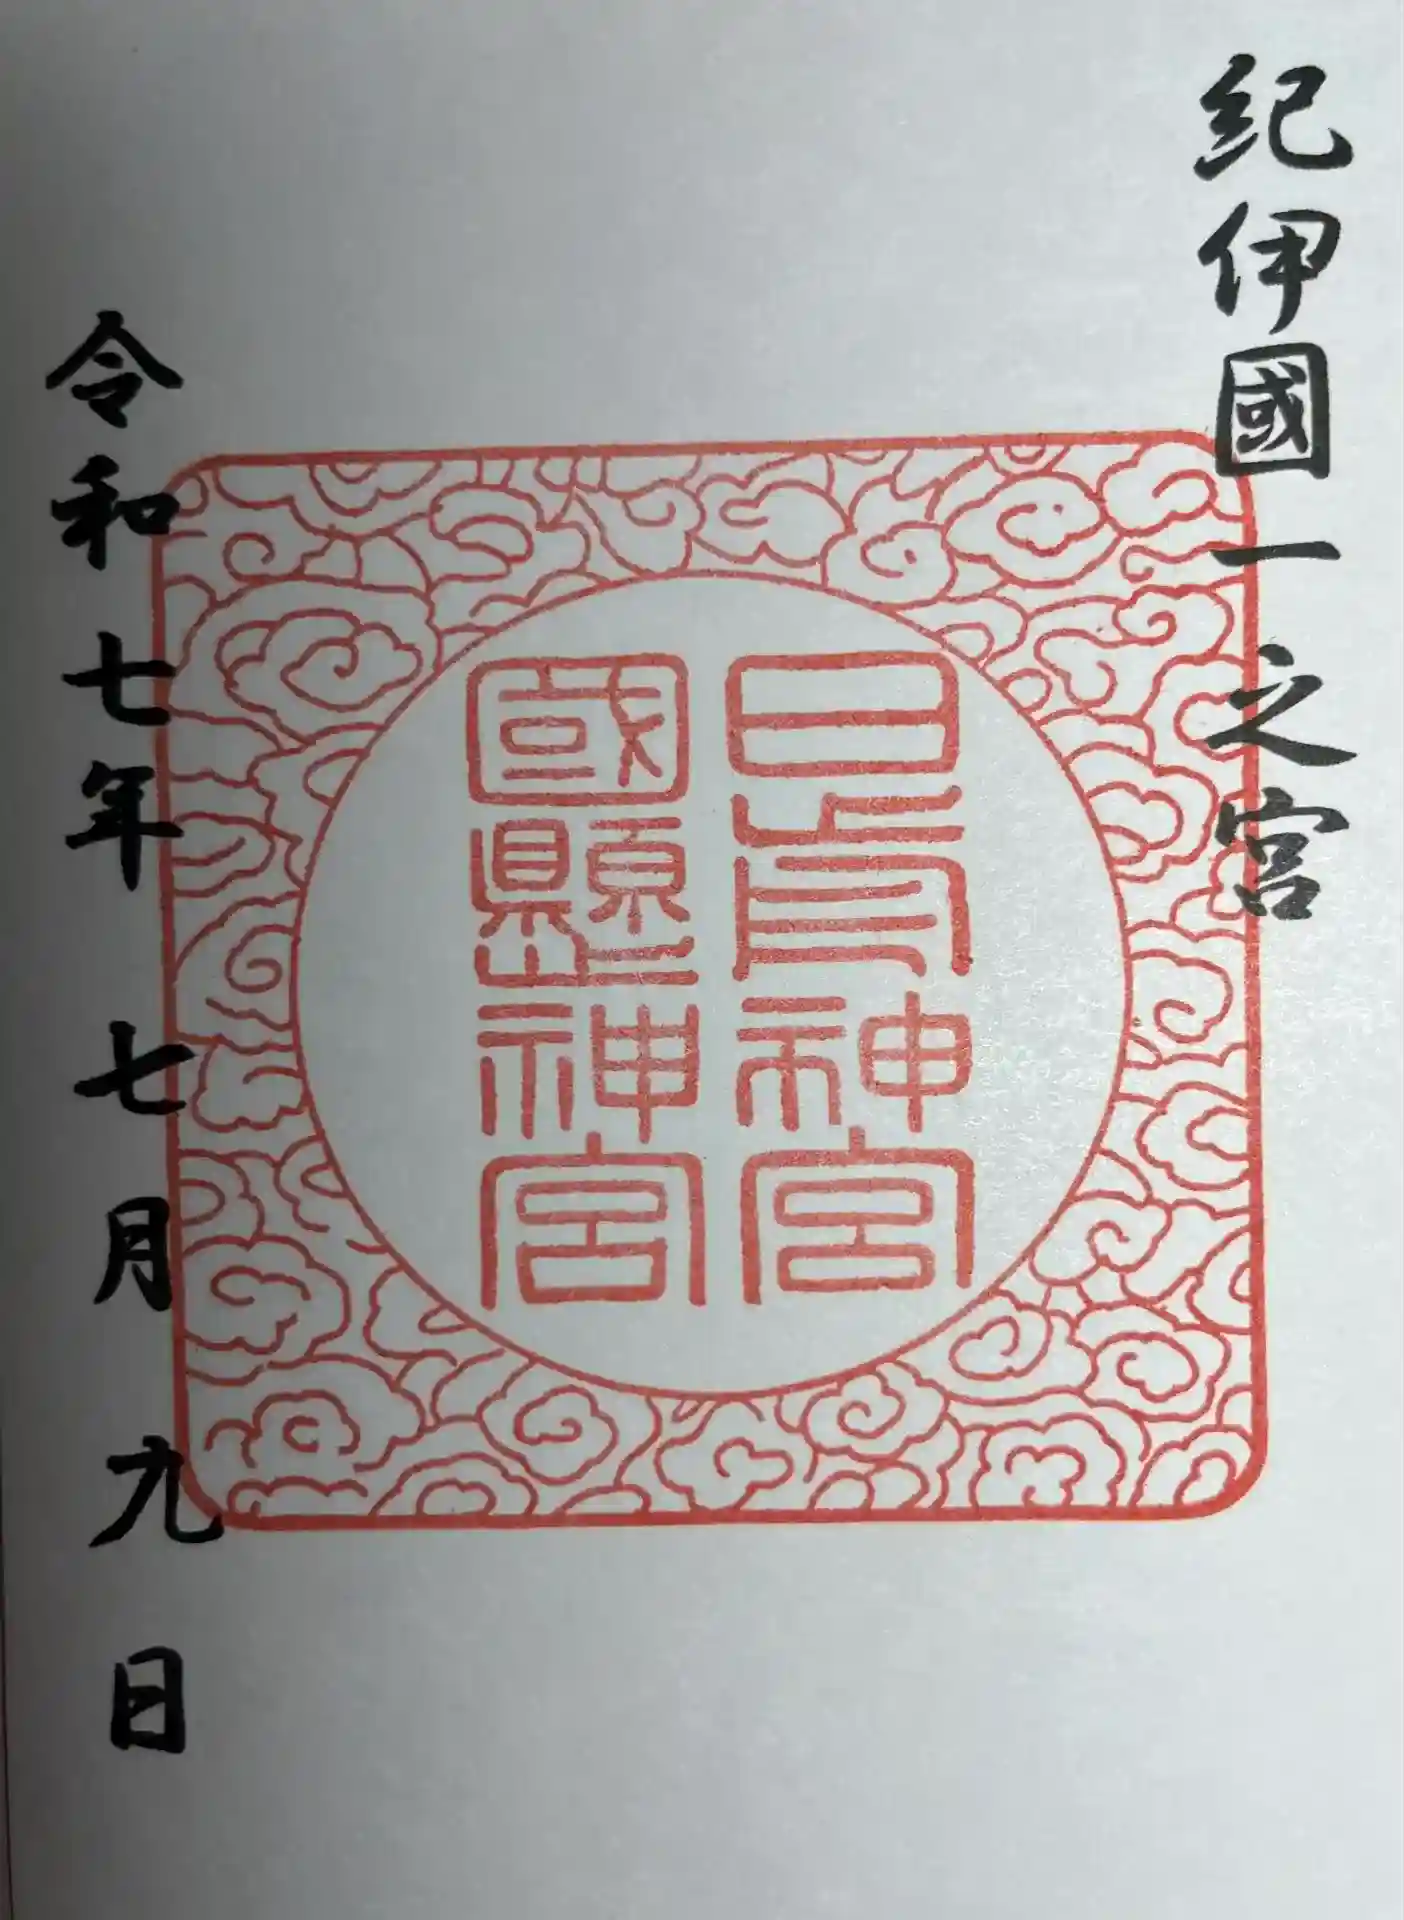 紀伊國一之宮
日前神宮
國懸神宮
令和七年七月九日